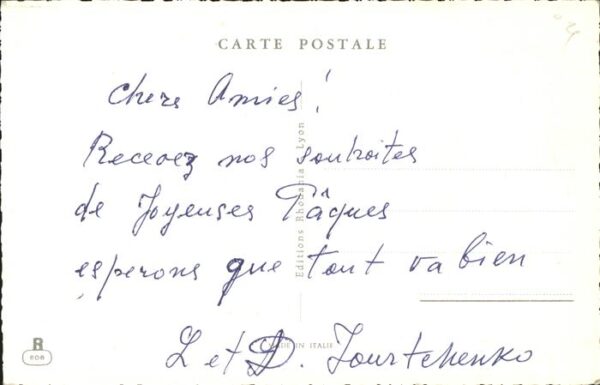 CARTE POSTALE
Chers Amies!
Recevez nos souhaites
de Joyeuses Pâques
esperons que tout va bien
L et D. Iourtchenko
Editions Rhodania - Lyon
MADE IN ITALIE
R